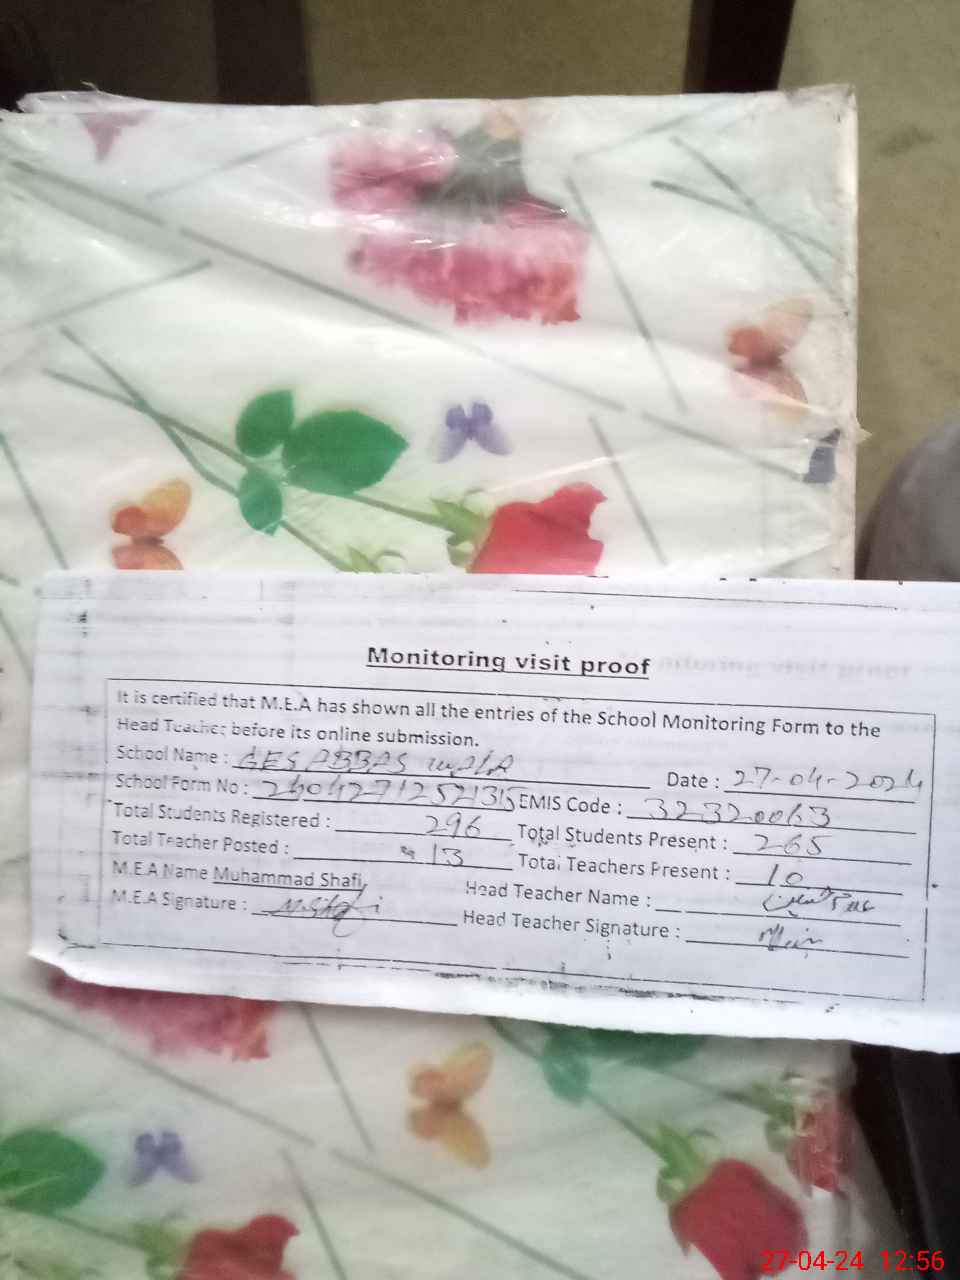 Monitoring visit proof
It is certified that M.E.A has shown all the entries of the School Monitoring Form to the
Head Teacher before its online submission.
School Name : GES ABBAS WALA Date : 27-04-2024
School Form No : EMIS Code : 32320063
Total Students Registered : 296 Total Students Present : 265
Total Teacher Posted : 13 Total Teachers Present : 10
M.E.A Name Muhammad Shafi Head Teacher Name :
M.E.A Signature : M.Shafi Head Teacher Signature :
27-04-24 12:56